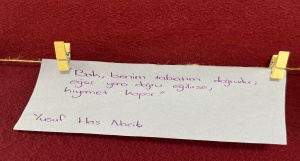 "Bak, benim tabiatım doğrudu;
eğer yere doğru eğilirse,
kıymet kopar."
Yusuf Has Hacib